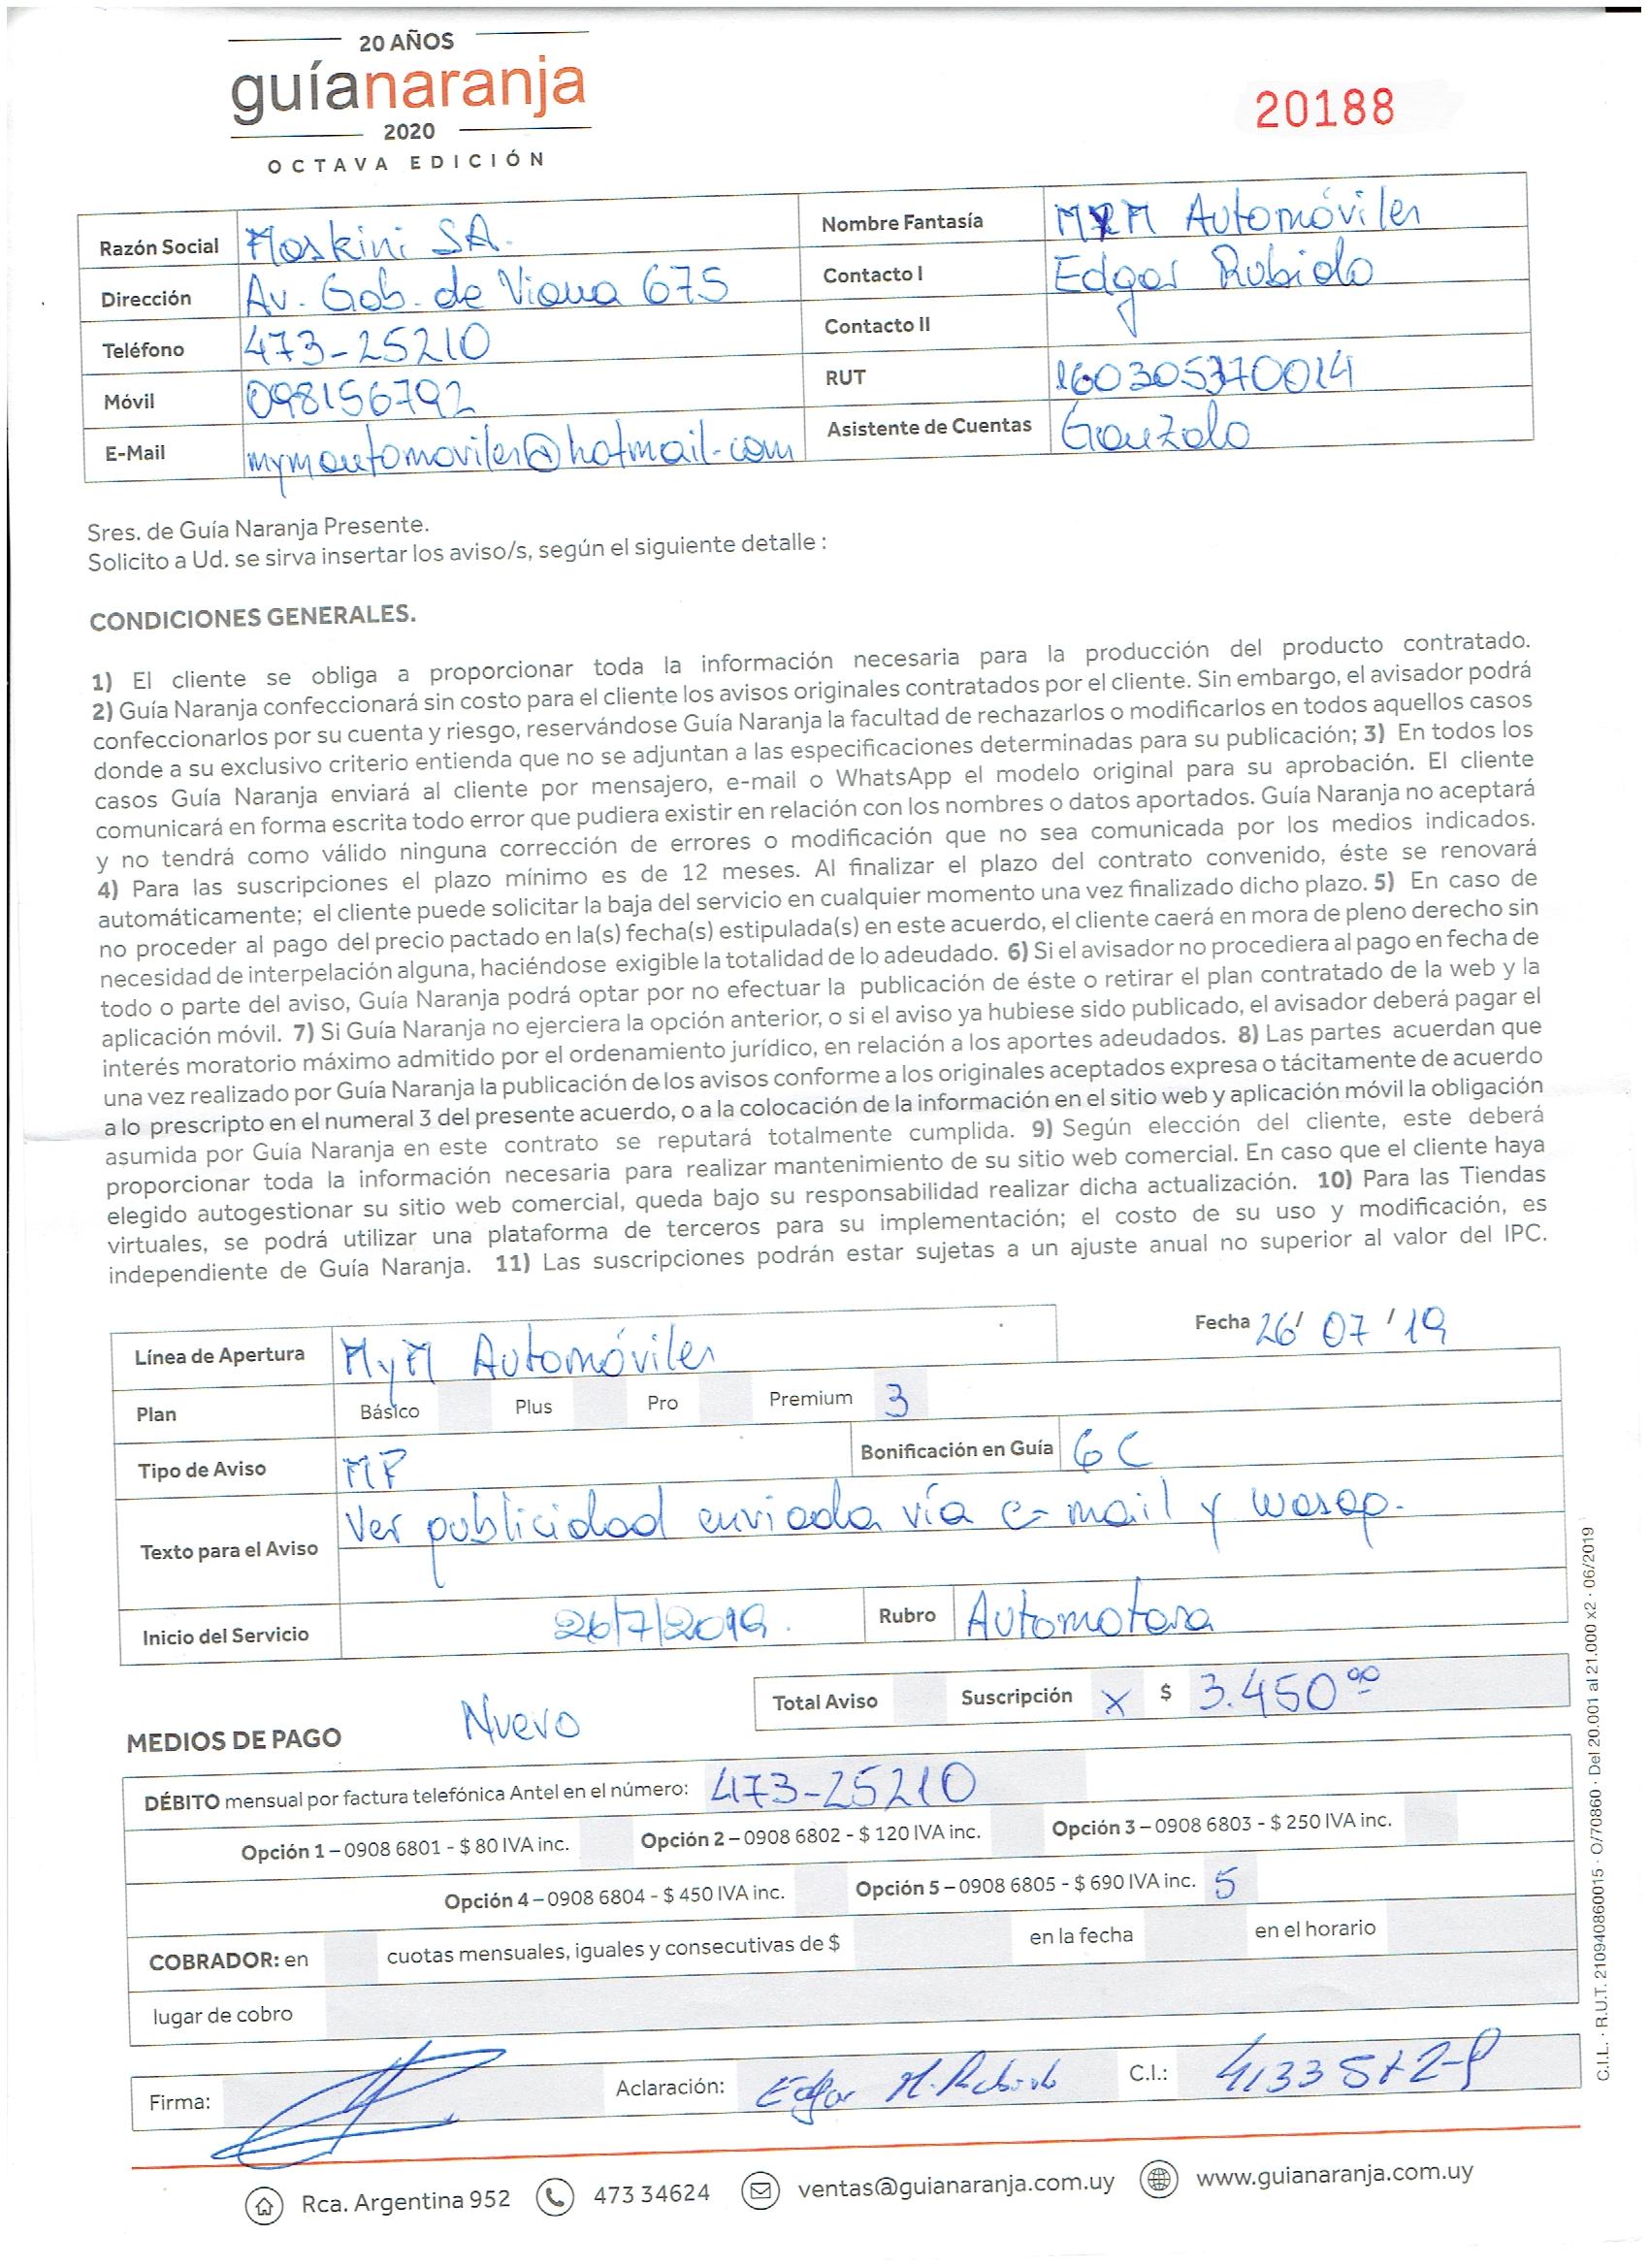 20 AÑOS
guíanaranja
2020
OCTAVA EDICIÓN
20188
Razón Social Moskini SA.
Nombre Fantasía MYM Automóviles
Dirección Av. Gob. de Viana 675
Contacto I Edgar Rubido
Teléfono 473-25210
Contacto II
Móvil 098156792
RUT 160305370014
E-Mail mymautomoviles@hotmail.com
Asistente de Cuentas Gonzalo
Sres. de Guía Naranja Presente.
Solicito a Ud. se sirva insertar los aviso/s, según el siguiente detalle :
CONDICIONES GENERALES.
1) El cliente se obliga a proporcionar toda la información necesaria para la producción del producto contratado.
2) Guía Naranja confeccionará sin costo para el cliente los avisos originales contratados por el cliente. Sin embargo, el avisador podrá
confeccionarlos por su cuenta y riesgo, reservándose Guía Naranja la facultad de rechazarlos o modificarlos en todos aquellos casos
donde a su exclusivo criterio entienda que no se adjuntan a las especificaciones determinadas para su publicación; 3) En todos los
casos Guía Naranja enviará al cliente por mensajero, e-mail o WhatsApp el modelo original para su aprobación. El cliente
comunicará en forma escrita todo error que pudiera existir en relación con los nombres o datos aportados. Guía Naranja no aceptará
y no tendrá como válido ninguna corrección de errores o modificación que no sea comunicada por los medios indicados.
4) Para las suscripciones el plazo mínimo es de 12 meses. Al finalizar el plazo del contrato convenido, éste se renovará
automáticamente; el cliente puede solicitar la baja del servicio en cualquier momento una vez finalizado dicho plazo. 5) En caso de
no proceder al pago del precio pactado en la(s) fecha(s) estipulada(s) en este acuerdo, el cliente caerá en mora de pleno derecho sin
necesidad de interpelación alguna, haciéndose exigible la totalidad de lo adeudado. 6) Si el avisador no procediera al pago en fecha de
todo o parte del aviso, Guía Naranja podrá optar por no efectuar la publicación de éste o retirar el plan contratado de la web y la
aplicación móvil. 7) Si Guía Naranja no ejerciera la opción anterior, o si el aviso ya hubiese sido publicado, el avisador deberá pagar el
interés moratorio máximo admitido por el ordenamiento jurídico, en relación a los aportes adeudados. 8) Las partes acuerdan que
una vez realizado por Guía Naranja la publicación de los avisos conforme a los originales aceptados expresa o tácitamente de acuerdo
a lo prescripto en el numeral 3 del presente acuerdo, o a la colocación de la información en el sitio web y aplicación móvil la obligación
asumida por Guía Naranja en este contrato se reputará totalmente cumplida. 9) Según elección del cliente, este deberá
proporcionar toda la información necesaria para realizar mantenimiento de su sitio web comercial. En caso que el cliente haya
elegido autogestionar su sitio web comercial, queda bajo su responsabilidad realizar dicha actualización. 10) Para las Tiendas
virtuales, se podrá utilizar una plataforma de terceros para su implementación; el costo de su uso y modificación, es
independiente de Guía Naranja. 11) Las suscripciones podrán estar sujetas a un ajuste anual no superior al valor del IPC.
Fecha 26' 07 '19
Línea de Apertura MyM Automóviles
Plan Básico Plus Pro Premium 3
Tipo de Aviso MP Bonificación en Guía 6C
Texto para el Aviso Ver publicidad enviada vía e-mail y wasap.
Inicio del Servicio 26/7/2019. Rubro Automotora
Total Aviso Suscripción X $ 3.450 00
MEDIOS DE PAGO Nuevo
DÉBITO mensual por factura telefónica Antel en el número: 473-25210
Opción 1 – 0908 6801 - $ 80 IVA inc. Opción 2 – 0908 6802 - $ 120 IVA inc. Opción 3 – 0908 6803 - $ 250 IVA inc.
Opción 4 – 0908 6804 - $ 450 IVA inc. Opción 5 – 0908 6805 - $ 690 IVA inc. 5
COBRADOR: en cuotas mensuales, iguales y consecutivas de $ en la fecha en el horario
lugar de cobro
Firma: Aclaración: Edgar M. Rubido C.I.:
Rca. Argentina 952 473 34624 ventas@guianaranja.com.uy www.guianaranja.com.uy
C.I.L. · R.U.T. 210940860015 · O/70860 · Del 20.001 al 21.000 x2 · 06/2019